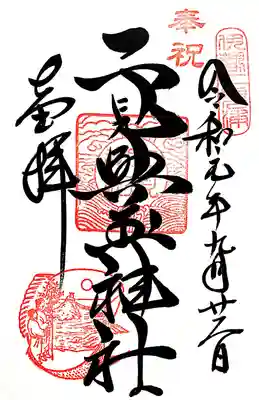 奉祝
令和元年九月廿六日
二見興玉神社
壹拜